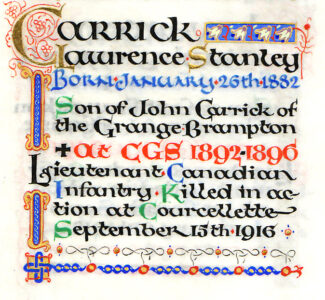 Carrick
Lawrence Stanley
Born·January·26th·1882
Son of John Carrick of
the Grange·Brampton
+at CGS 1892·1896
Lieutenant·Canadian
Infantry·Killed in ac-
tion at Courcellette
September 15th·1916·